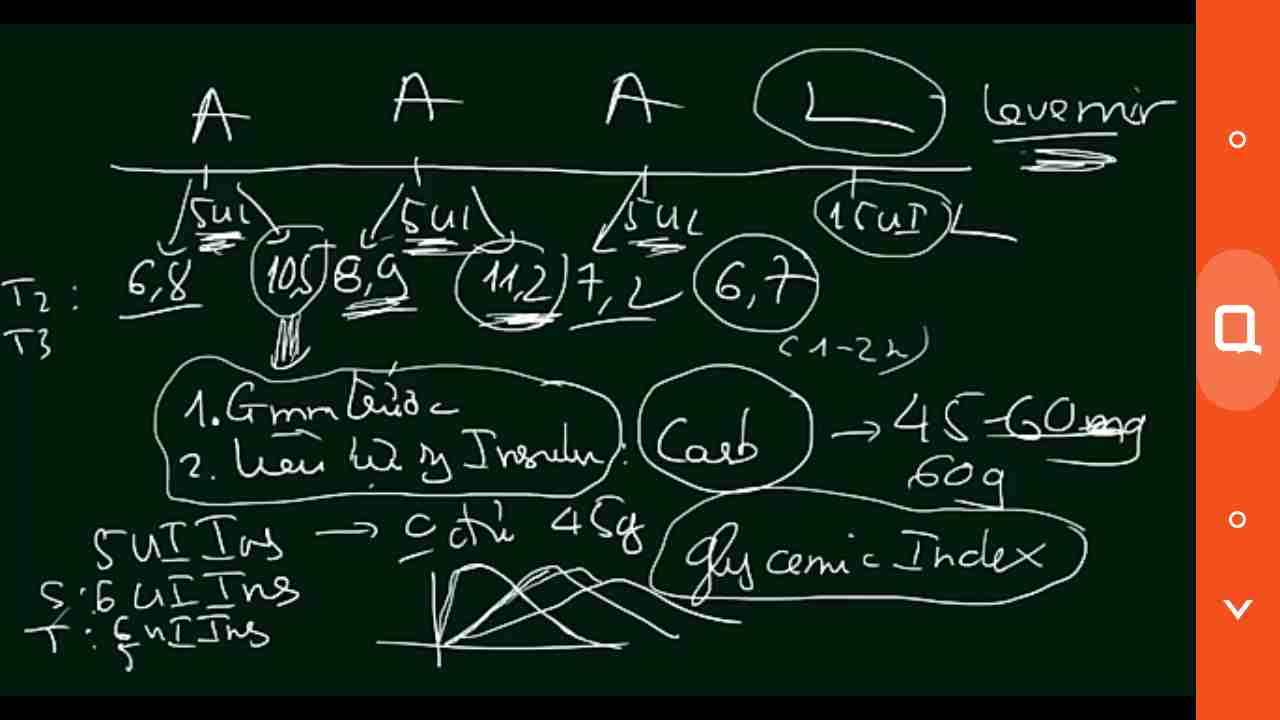 A A A L Levemir
5UI 5UI 5UI 15UI L
T2: 6,8 10,5 8,9 11,2 7,2 6,7
T3 (1-2h)
1. Gmm trước
2. Insulin: Carb → 45-60mg
60g
5UI Ins → 45g Glycemic Index
S: 6 UI Ins
T: 6 UI Ins
5